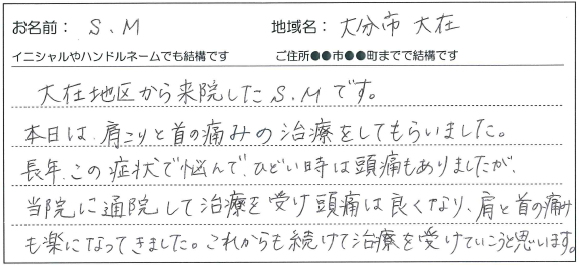 お名前： S.M 地域名： 大分市 大在
イニシャルやハンドルネームでも結構です ご住所●●市●●町までで結構です
大在地区から来院したS.Mです。
本日は、肩こりと首の痛みの治療をしてもらいました。
長年、この症状で悩んで、ひどい時は頭痛もありましたが、
当院に通院して治療を受け頭痛は良くなり、肩と首の痛み
も楽になってきました。これからも続けて治療を受けていこうと思います。